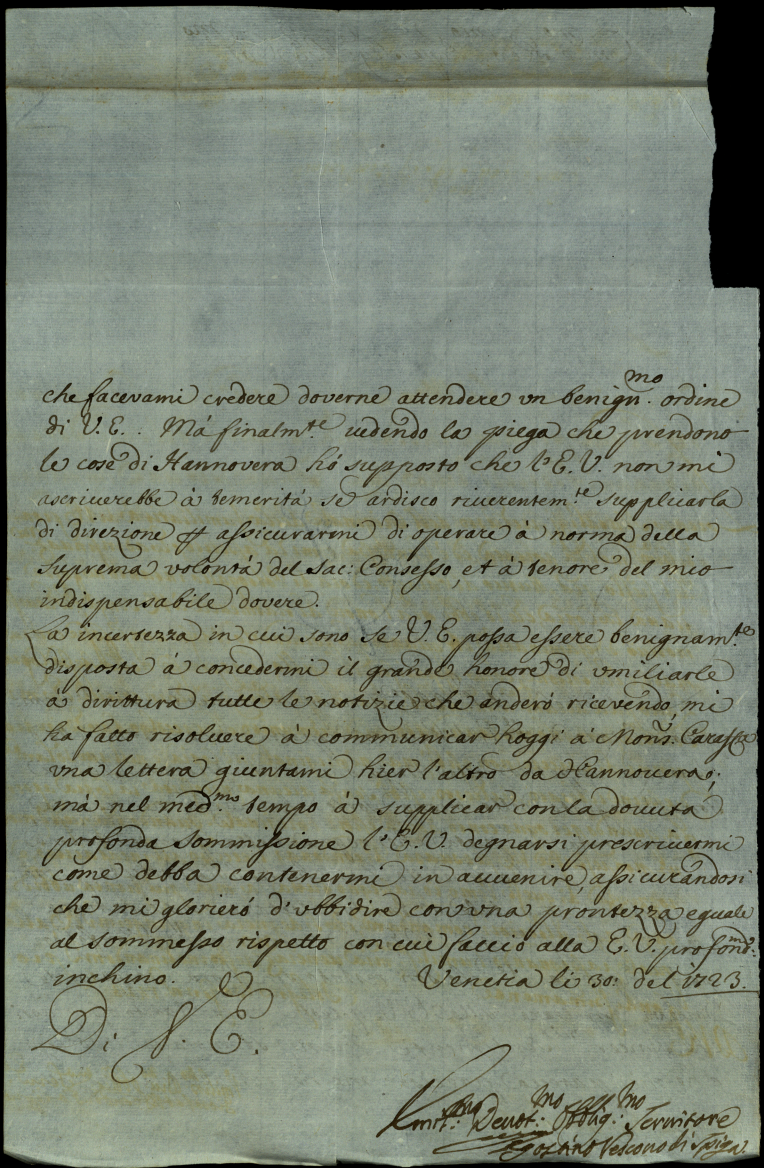 che facevami credere doverne attendere un benign.mo ordine
di V.E.. Má finalmte. uedendo la piega che prendono
le cose di Hannovera hó supposto che l'E.V. non mi
ascriuerebbe á temeritá se ardisco riuerentem.te supplicarla
di direzione per assicurarmi di operare á norma della
suprema volontá del sac: Consesso, et á tenore del mio
indispensabile dovere.
La incertezza in cui sono se V.E. possa essere benignam.te
disposta á concedermi il grande honore di vmiliarle
á dirittura tutte le notizie che anderó ricevendo, mi
ha fatto risoluere á communicar hoggi á Mons.r Caraffa
vna lettera giuntami hier l'altro da Hannouera;
má nel med.mo tempo á supplicar con la douuta
profonda sommissione l'E.V. degnarsi prescriuermi
come debba contenermi in auuenire, assicurandosi
che mi glorieró d'vbbidire con vna prontezza eguale
al sommesso rispetto con cui faccio alla E.V. profond.mo
inchino. Venetia li 30: del 1723.
Di V. E.
Vmil.mo Deuot.mo Obblig.mo Seruitore
Agostino Vescouo di Spiga.